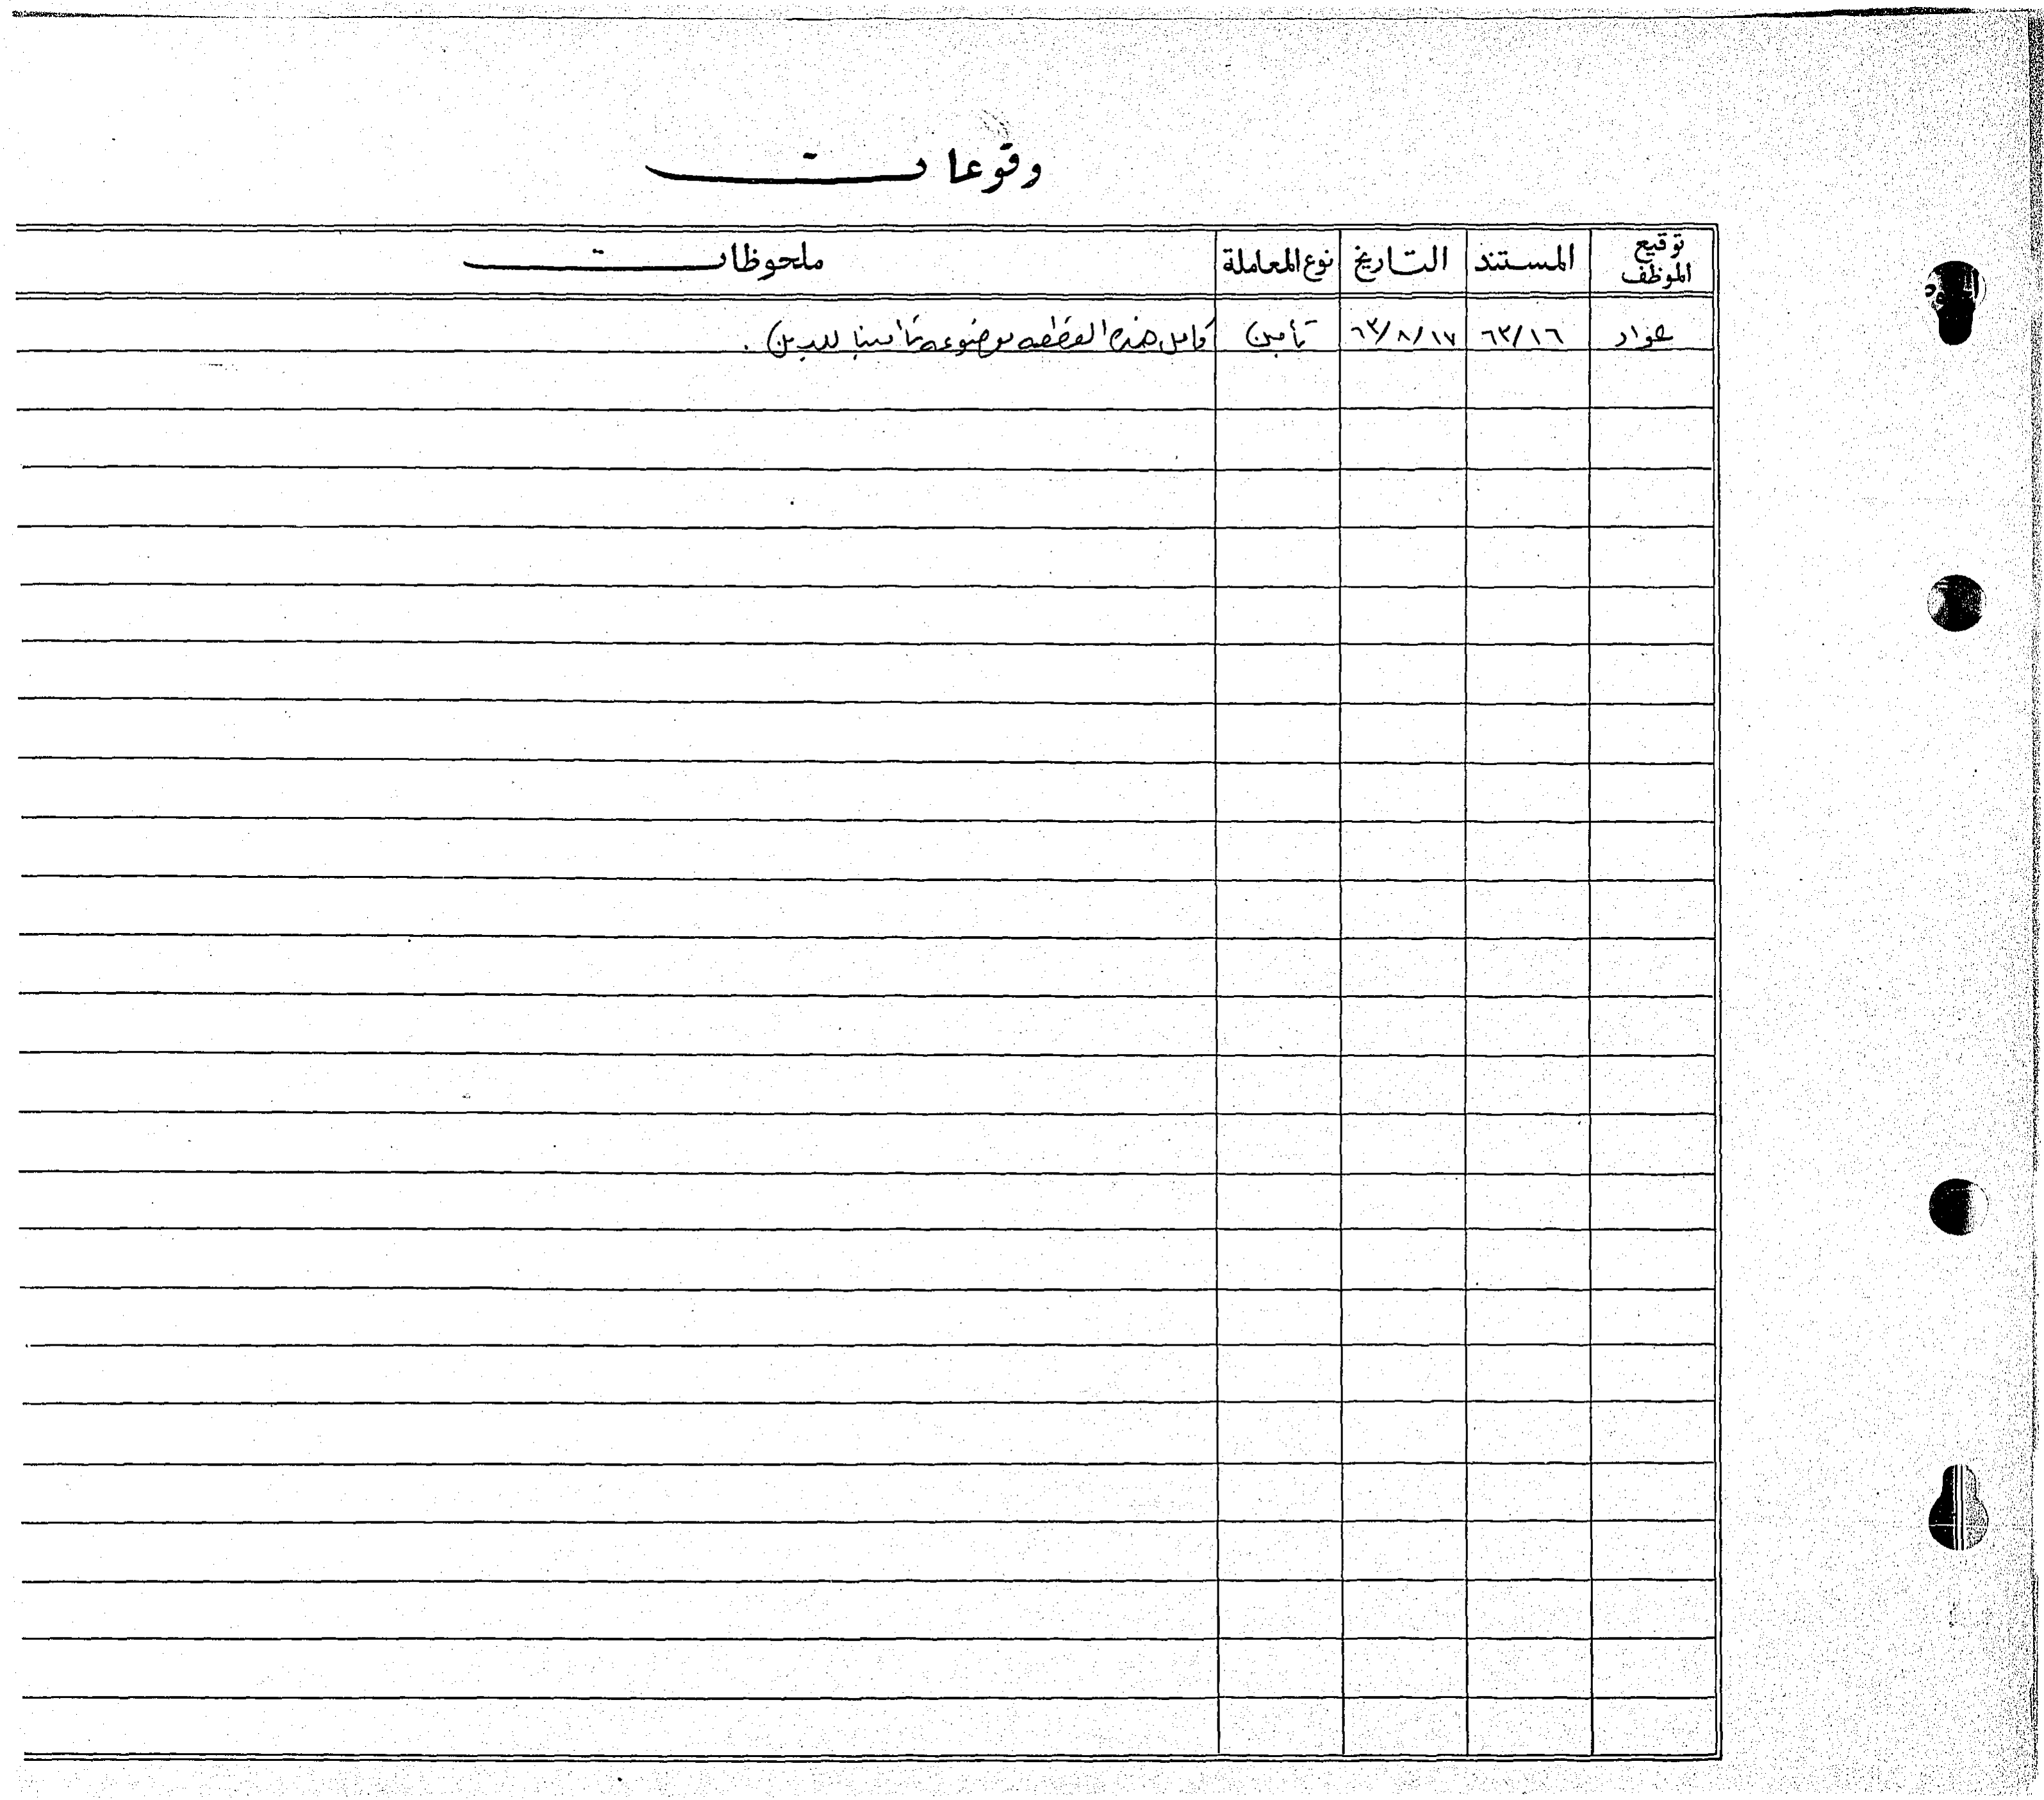 وقوعات
توقيع الموظف المستند التاريخ نوع المعاملة ملحوظات
عواد ٦٣/١٦ ٦٣/٨/١٧ تأمين كامل هذه القطعه موضوعه تأمينا للدين .